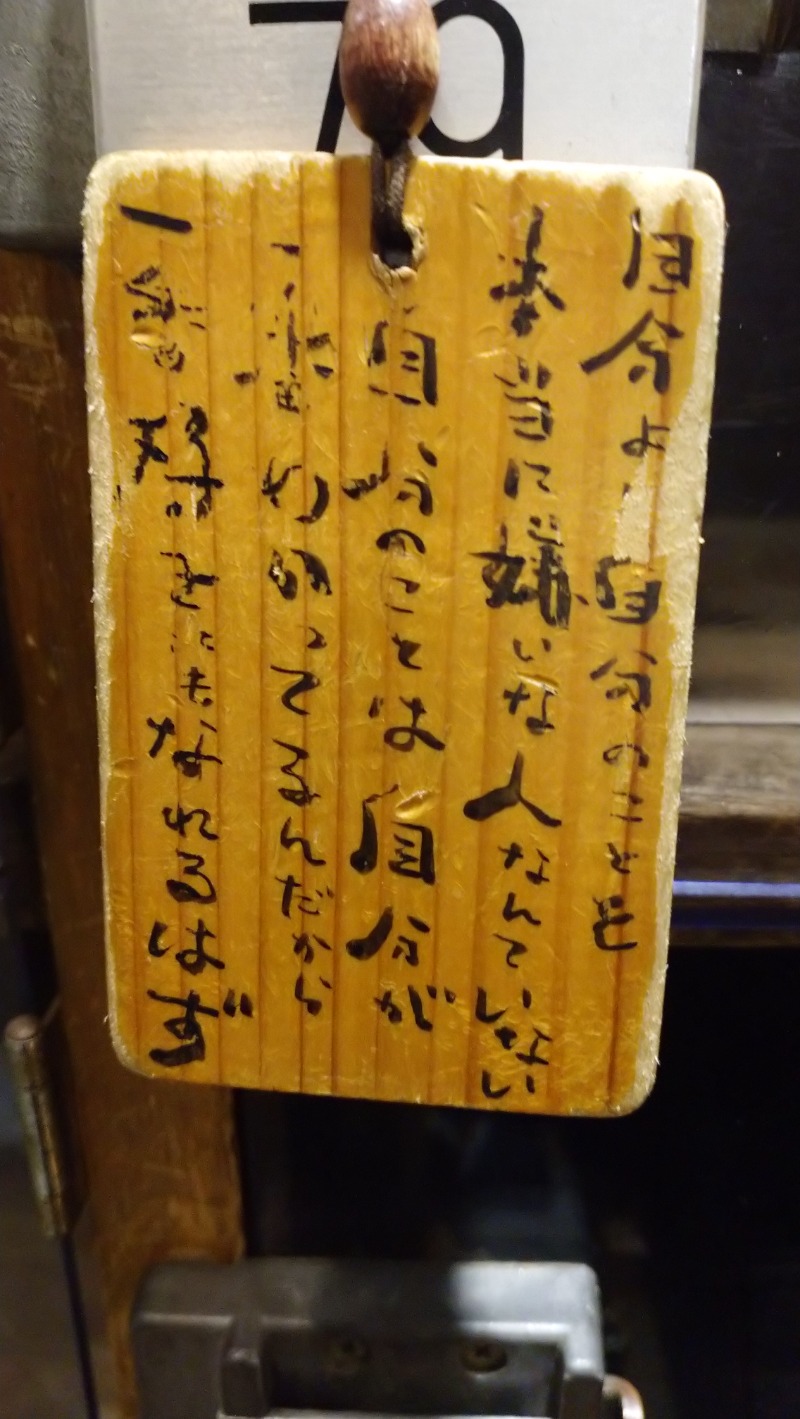 79
自分よ 自分のことを
本当に嫌いな人なんていない
自分のことは自分が
一番わかってるんだから
一番好きにもなれるはず